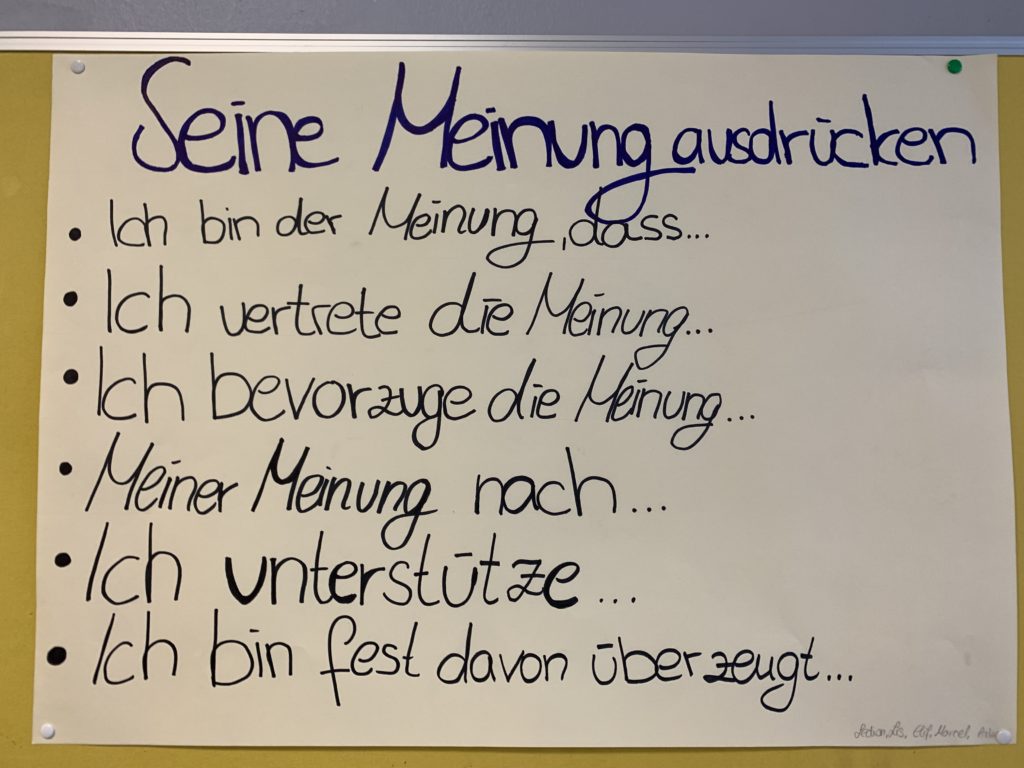 Seine Meinung ausdrücken
• Ich bin der Meinung, dass...
• Ich vertrete die Meinung...
• Ich bevorzuge die Meinung...
• Meiner Meinung nach...
• Ich unterstütze...
• Ich bin fest davon überzeugt...
Elif, Marcel,